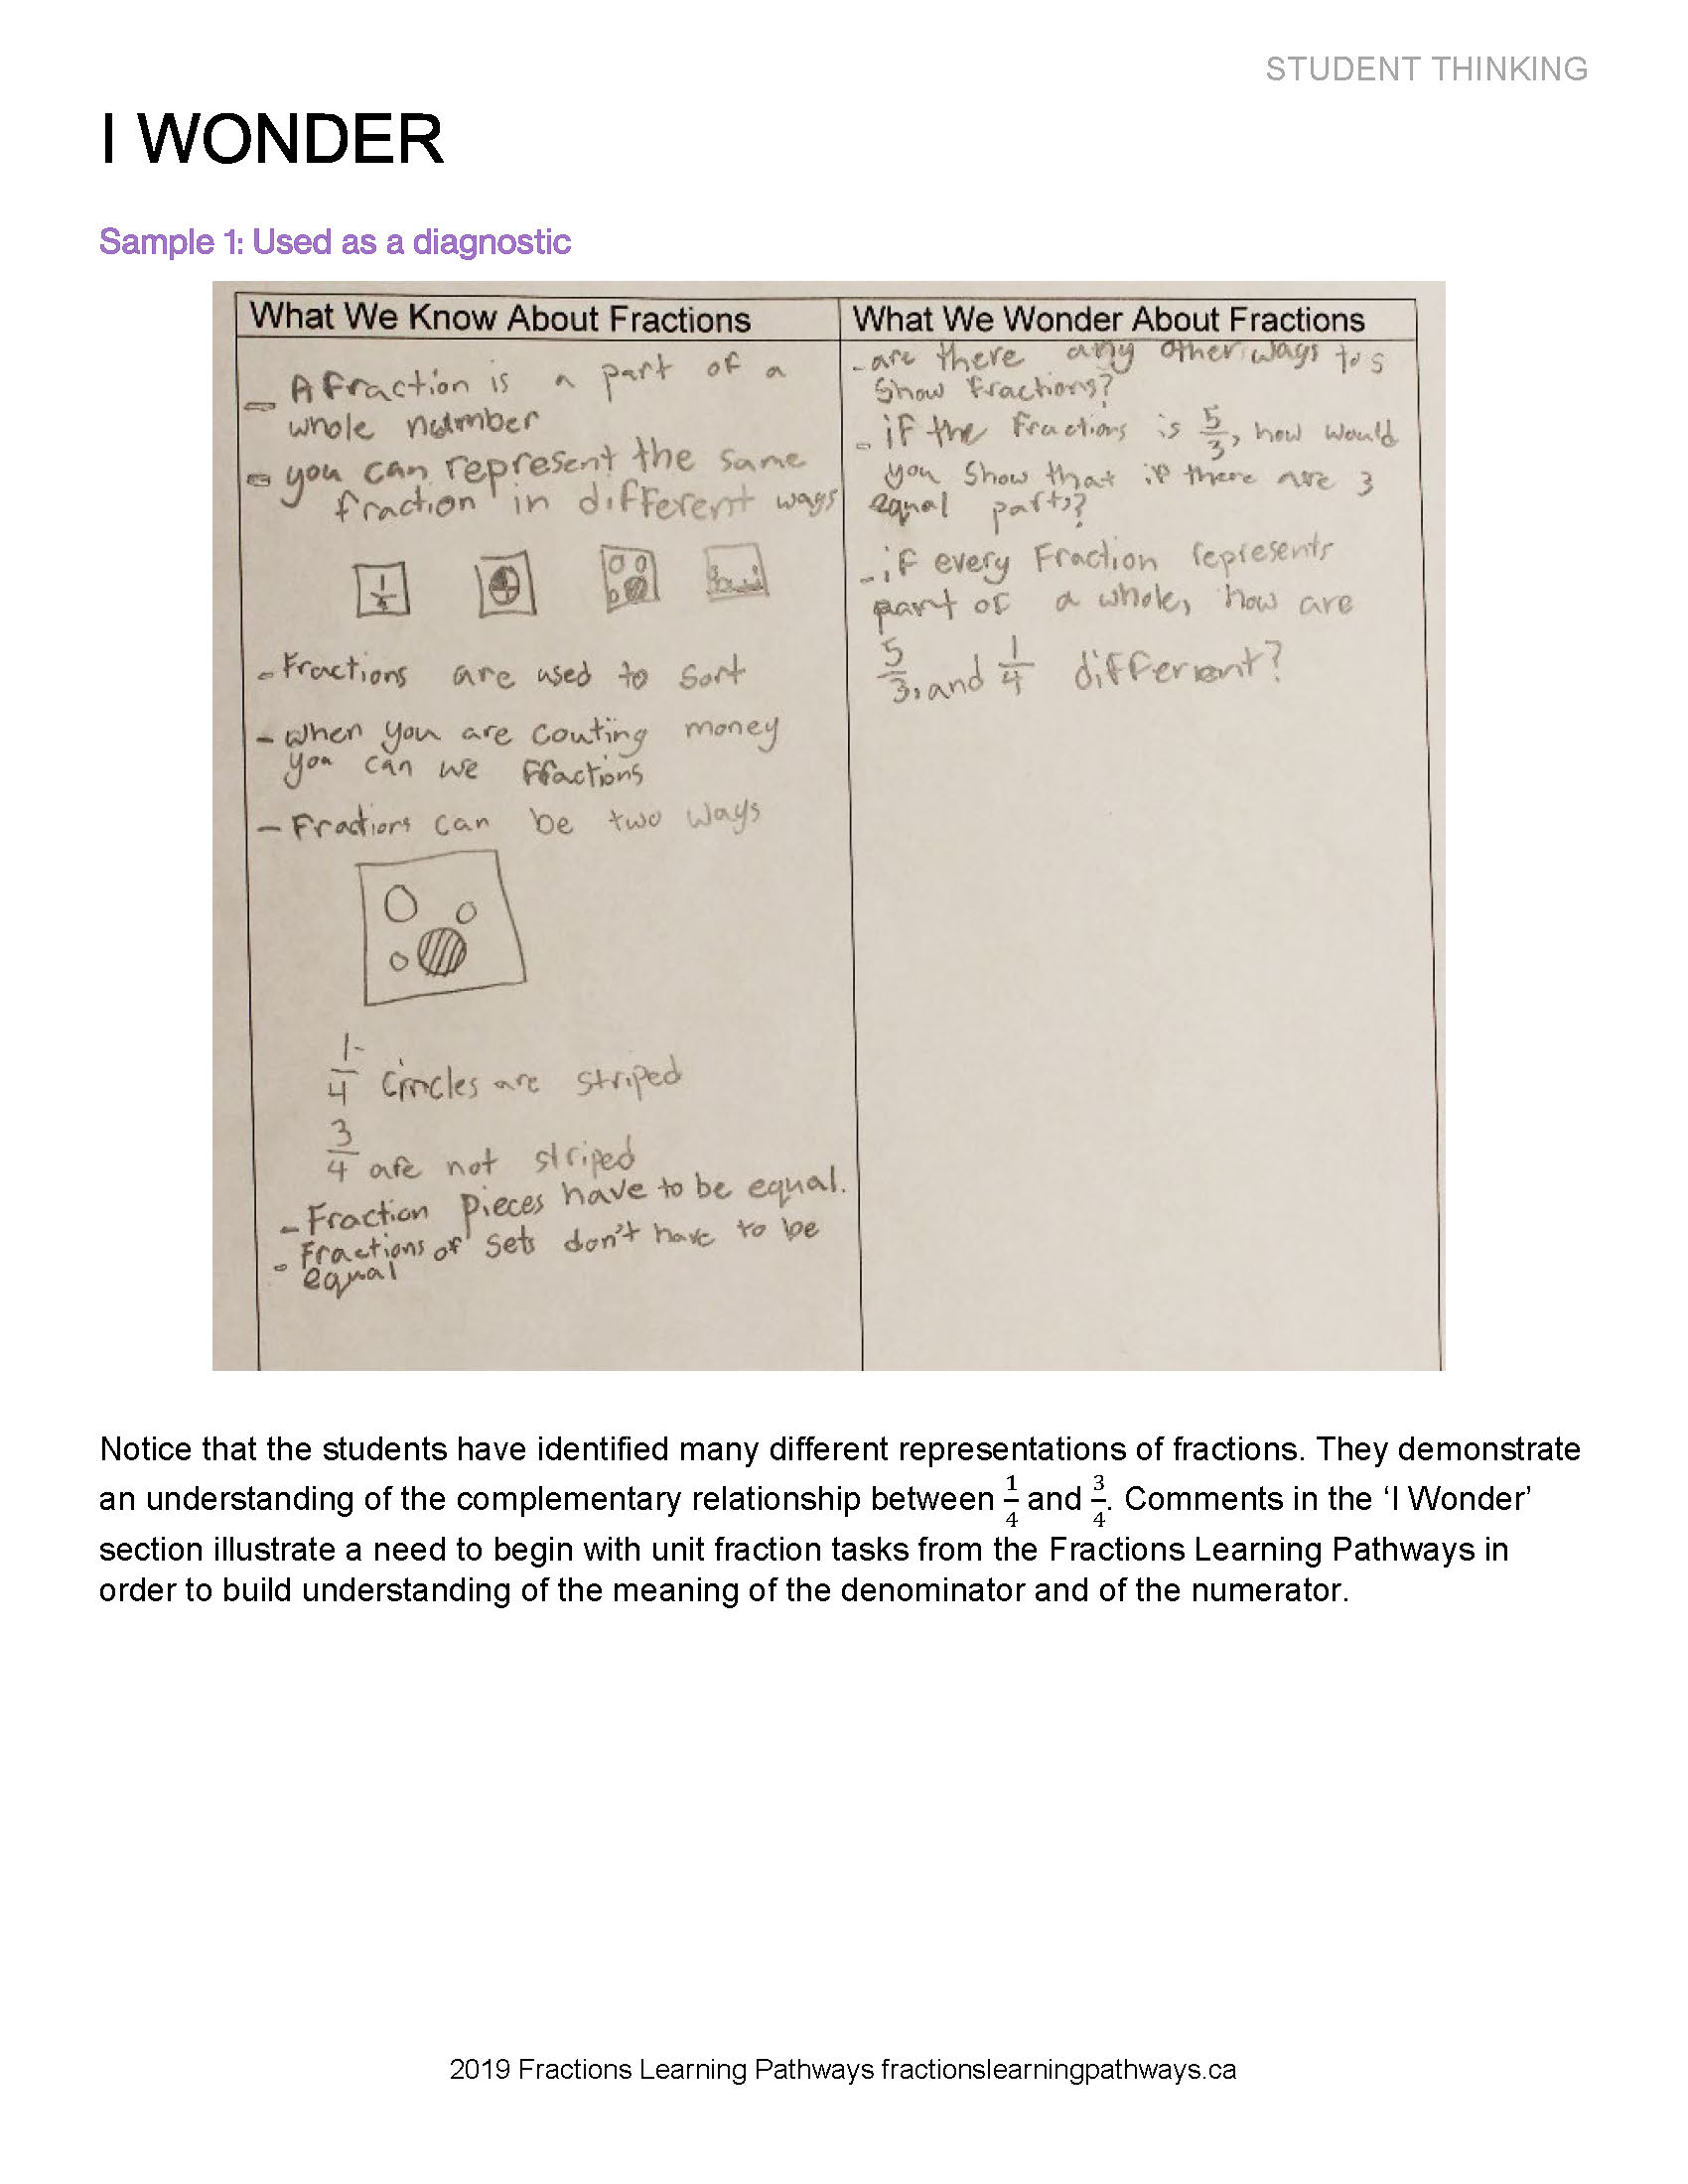 STUDENT THINKING
I WONDER
Sample 1: Used as a diagnostic
What We Know About Fractions
- A fraction is a part of a
whole number
- you can represent the same
fraction in different ways
1/4
- Fractions are used to sort
- when you are couting money
you can use fractions
- Fractions can be two ways
1/4 circles are striped
3/4 are not striped
- Fraction pieces have to be equal.
- Fractions of sets don't have to be
equal
What We Wonder About Fractions
- are there any other ways to
show fractions?
- if the fractions is 5/3, how would
you show that if there are 3
equal parts?
- if every Fraction represents
part of a whole, how are
5/3, and 1/4 different?
Notice that the students have identified many different representations of fractions. They demonstrate
an understanding of the complementary relationship between 1/4 and 3/4. Comments in the ‘I Wonder’
section illustrate a need to begin with unit fraction tasks from the Fractions Learning Pathways in
order to build understanding of the meaning of the denominator and of the numerator.
2019 Fractions Learning Pathways fractionslearningpathways.ca